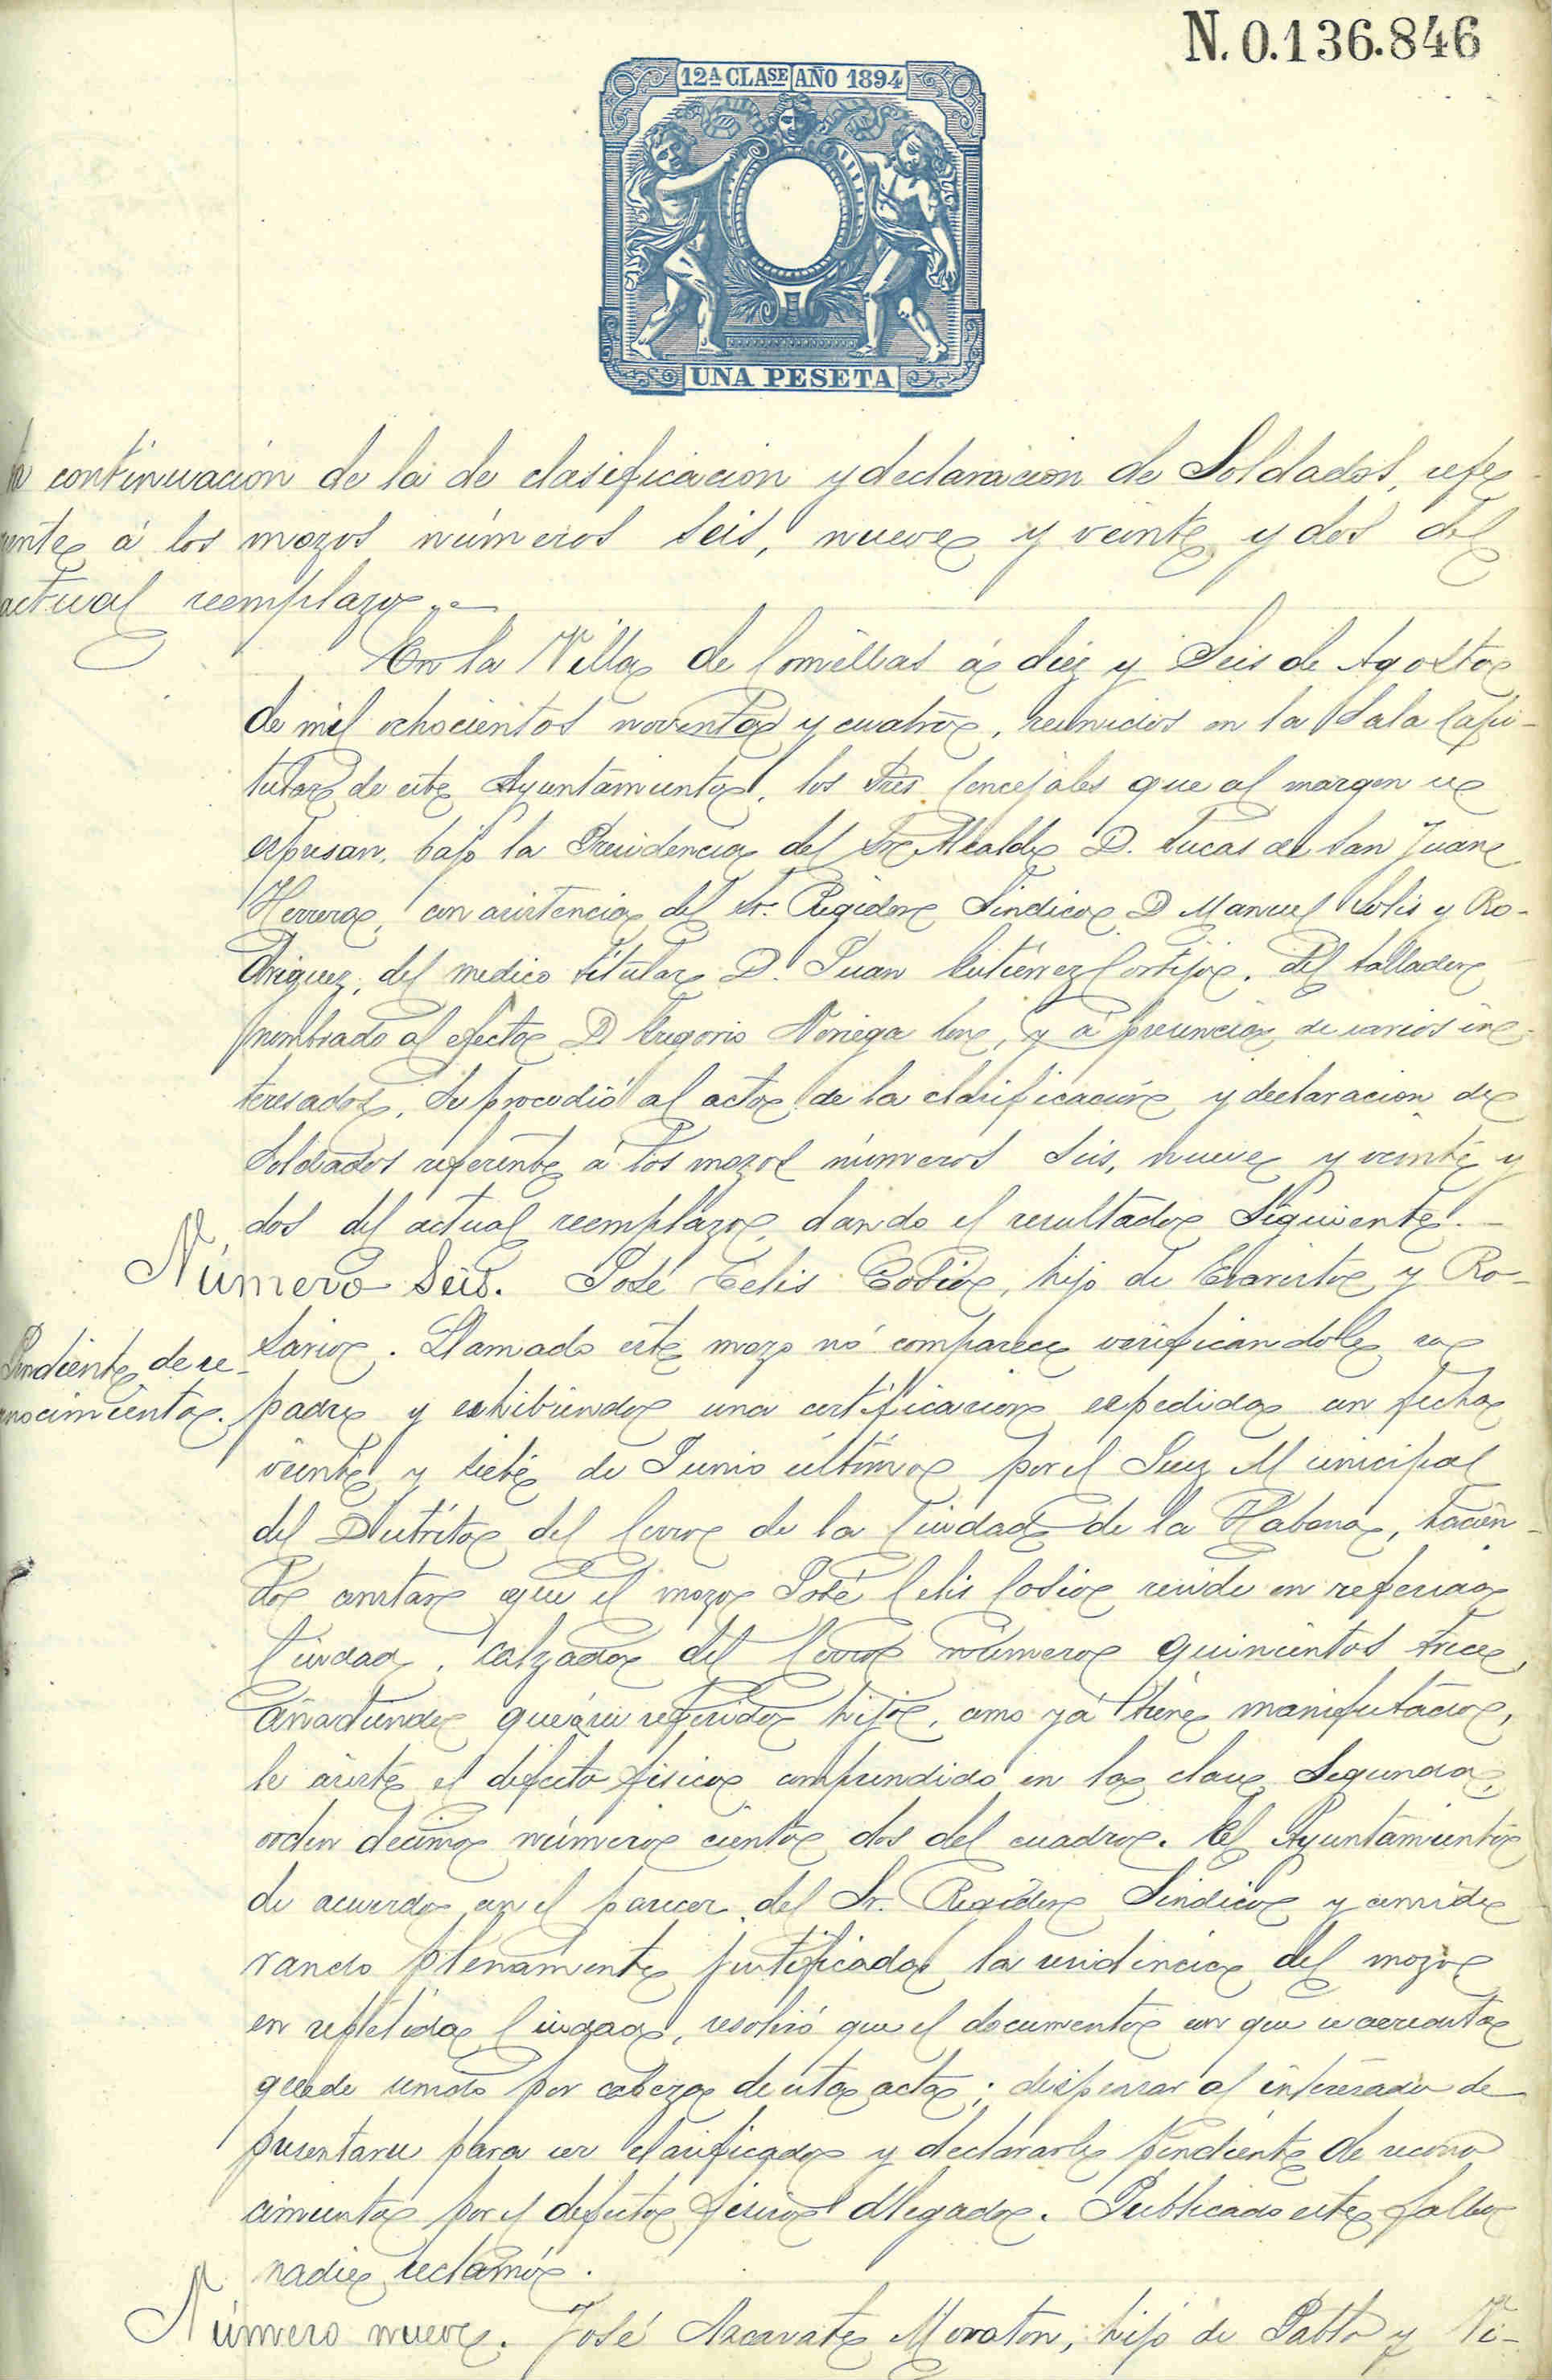 N. 0.136.846
12A CLASE AÑO 1894
UNA PESETA
continuación de la de clasificación y declaración de Soldados, refe
rente á los mozos números seis, nueve y veinte y dos del
actual reemplazo.
En la Villa de Comillas á diez y Seis de Agosto
de mil ochocientos noventa y cuatro, reunidos en la Sala Capi-
tular de este Ayuntamiento, los Sres Concejales que al margen se
espresan, bajo la Presidencia del Sr Alcalde D. Lucas de San Juan
Herrera, con asistencia del Sr. Regidor Sindico D Manuel Solis y Ro-
driguez, del medico titular D. Juan Gutiérrez Cortijo, del tallador
nombrado al efecto D Gregorio Noriega y á presencia de varios in
teresados, Se procedió al acto de la clasificación y declaracion de
Soldados referente á los mozos números Seis, nueve y veinte y
dos del actual reemplazo, dando el resultado Siguiente.
Número Seis. José Celis Cosio, hijo de Evaristo y Ro-
sario. Llamado este mozo nó comparece verificandole su
Pendiente de re-
conocimiento.
padre y exhibiendo una certificación espedida con fecha
veinte y siete de Junio último por el Juez Municipal
del Distrito del Cerro de la Ciudad de la Habana, hacien-
do constar que el mozo José Celis Cosio reside en referida
Ciudad, calzada del Cerro número quinientos trece,
añadiendo que á su referido hijo, como yá tiene manifestado,
le asiste el defecto físico comprendido en la clase Segunda,
orden décimo número ciento dos del cuadro. El Ayuntamiento
de acuerdo con el parecer del Sr. Regidor Sindico y conside
rando plenamente justificada la residencia del mozo
en repetida Ciudad, resolvió que el documento con que se acredita
quede unido por cabeza de esta acta; dispensar al interesado de
presentarse para ser clasificado y declararle pendiente de recono
cimiento por el defecto físico alegado. Publicado este fallo
nadie reclamó.
Número nueve. José Azcarate Moraton, hijo de Pablo y Vi-